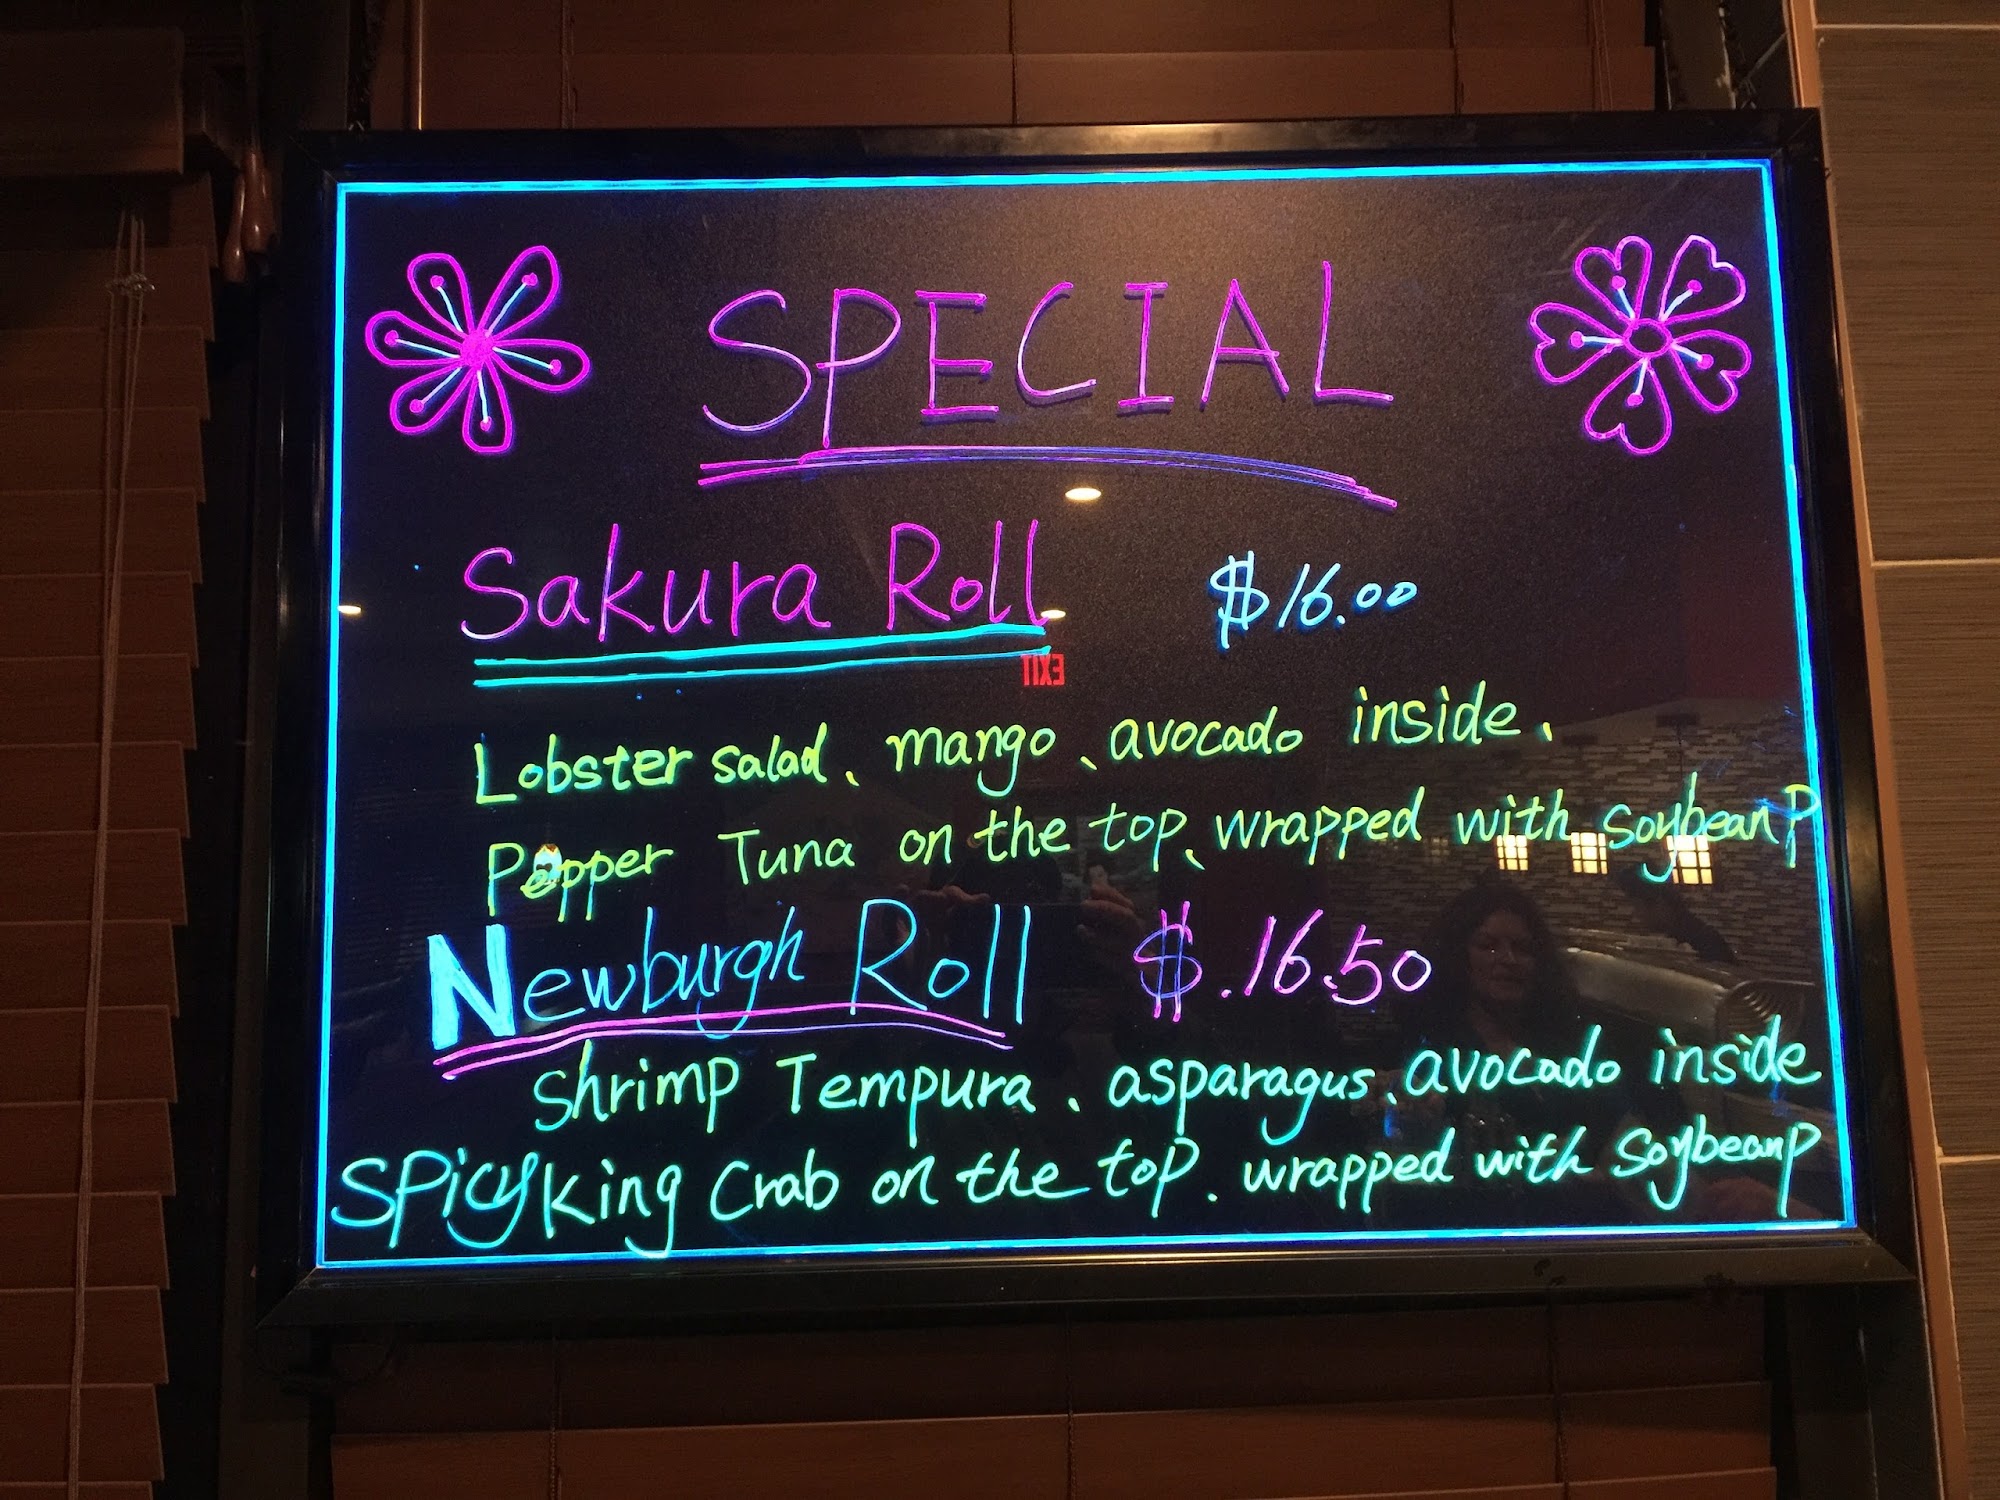 SPECIAL
Sakura Roll $16.00
EXIT
Lobster salad、mango、avocado inside、
Pepper Tuna on the top、wrapped with soybean P
Newburgh Roll $.16.50
Shrimp Tempura、asparagus、avocado inside
SPicy king Crab on the top. wrapped with Soybean P